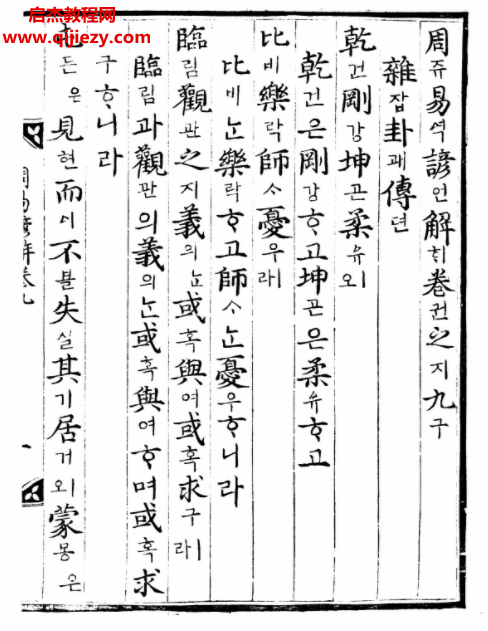 启杰教程网
www.qjiezy.com
周쥬易역諺언解ᄒᆡ卷권之지九구
雜잡卦괘傳뎐
乾건剛강坤곤柔유ㅣ오
乾건은剛강ᄒᆞ고坤곤은柔유ᄒᆞ고
比비樂락師ᄉᆞ憂우ㅣ라
比비ᄂᆞᆫ樂락ᄒᆞ고師ᄉᆞᄂᆞᆫ憂우ᄒᆞ니라
臨림觀관之지義의ᄂᆞᆫ或혹與여或혹求구ㅣ라
臨림과觀관의義의ᄂᆞᆫ或혹與여ᄒᆞ며或혹求
구ᄒᆞ니라
屯둔은見현而이不블失실其기居거외蒙몽은